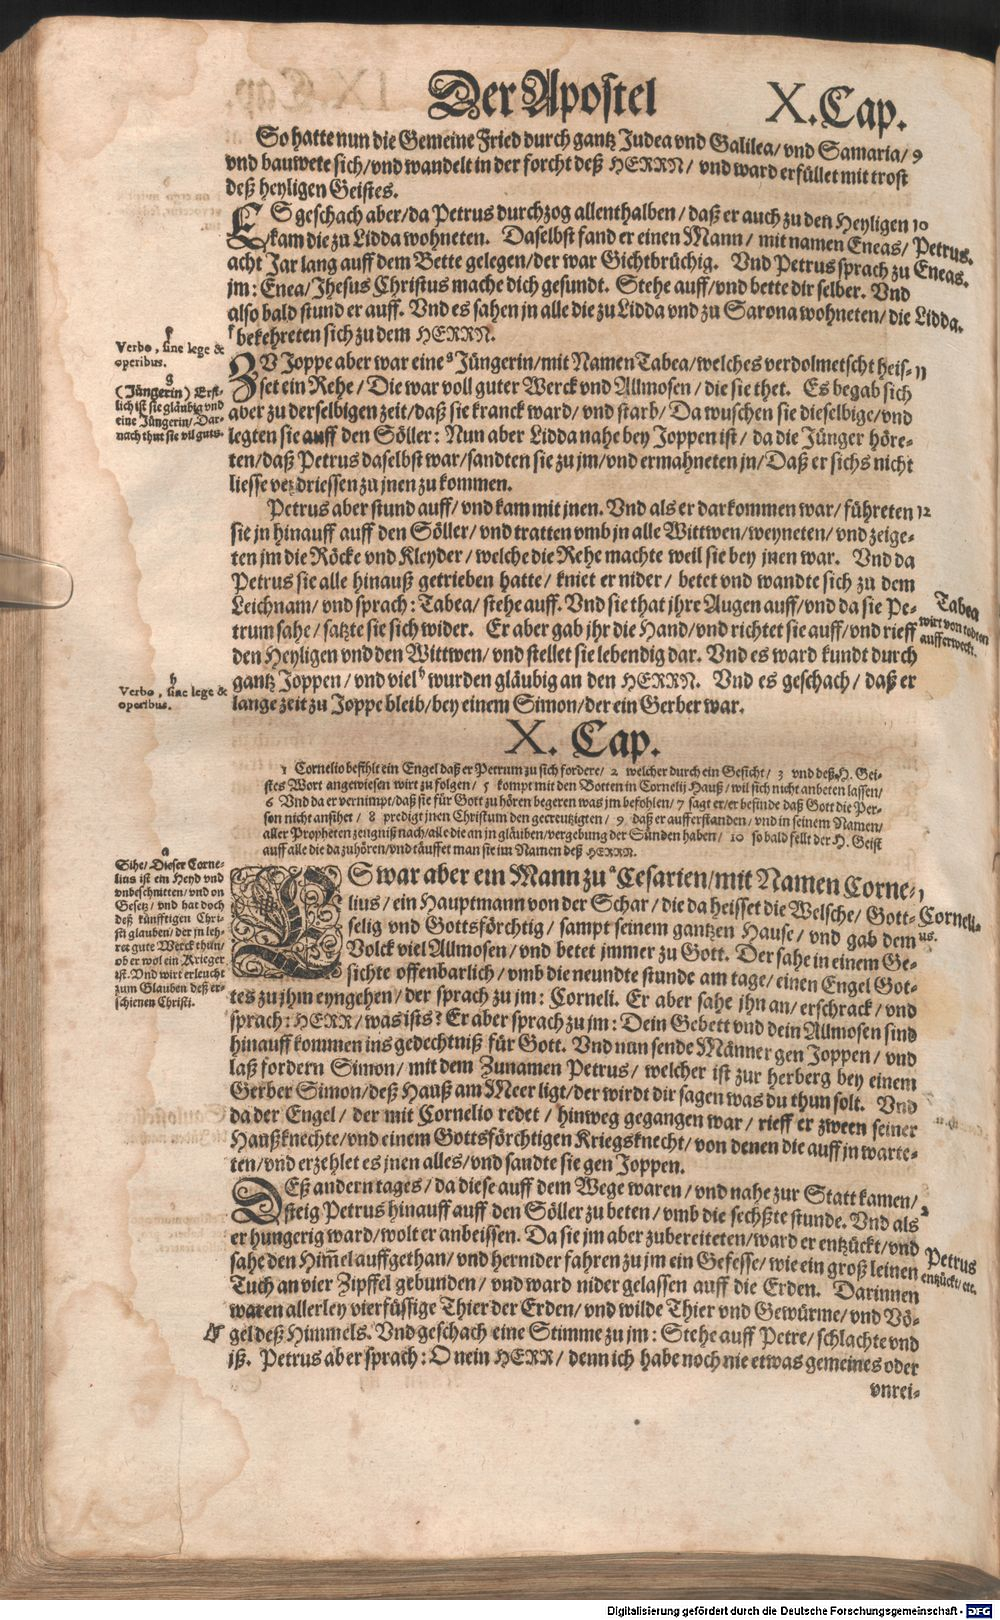 Der Apostel
X. Cap.
So hatte nun die Gemeine Fried durch gantz Judea vnd Galilea/ vnd Samaria/ 9
vnd bauwete sich/ vnd wandelt in der forcht deß HERRN/ vnd ward erfüllet mit trost
deß heyligen Geistes.
ES geschach aber/ da Petrus durchzog allenthalben/ daß er auch zu den Heyligen 10
kam die zu Lidda wohneten. Daselbst fand er einen Mann/ mit namen Eneas/
acht Jar lang auff dem Bette gelegen/ der war Gichtbrüchig. Vnd Petrus sprach zu
jm: Enea/ Jhesus Christus mache dich gesundt. Stehe auff/ vnd bette dir selber. Vnd
also bald stund er auff. Vnd es sahen jn alle die zu Lidda vnd zu Sarona wohneten/ die
f bekehreten sich zu dem HERRN.
Petrus.
Eneas.
Lidda.
f
Verbo, sine lege &
operibus.
g
(Jüngerin) Erst-
lich ist sie gläubig vnd
eine Jüngerin/ Dar-
nach thut sie vil guts.
ZV Joppe aber war eine g Jüngerin/ mit Namen Tabea/ welches verdolmetscht heis- 11
set ein Rehe/ Die war voll guter Werck vnd Allmosen/ die sie thet. Es begab sich
aber zu derselbigen zeit/ daß sie kranck ward/ vnd starb/ Da wuschen sie dieselbige/ vnd
legten sie auff den Söller: Nun aber Lidda nahe bey Joppen ist/ da die Jünger höre-
ten/ daß Petrus daselbst war/ sandten sie zu jm/ vnd ermahneten jn/ Daß er sichs nicht
liesse verdriessen zu jnen zu kommen.
Petrus aber stund auff/ vnd kam mit jnen. Vnd als er dar kommen war/ führeten 12
sie jn hinauff auff den Söller/ vnd tratten vmb jn alle Wittwen/ weyneten/ vnd zeige-
ten jm die Röcke vnd Kleyder/ welche die Rehe machte weil sie bey jnen war. Vnd da
Petrus sie alle hinauß getrieben hatte/ kniet er nider/ betet vnd wandte sich zu dem
Leichnam/ vnd sprach: Tabea/ stehe auff. Vnd sie that jhre Augen auff/ vnd da sie Pe-
trum sahe/ satzte sie sich wider. Er aber gab jhr die Hand/ vnd richtet sie auff/ vnd rieff
den Heyligen vnd den Wittwen/ vnd stellet sie lebendig dar. Vnd es ward kundt durch
gantz Joppen/ vnd viel h wurden gläubig an den HERRN. Vnd es geschach/ daß er
lange zeit zu Joppe bleib/ bey einem Simon/ der ein Gerber war.
Tabea
wirt von todten
aufferweckt.
h
Verbo, sine lege &
operibus.
X. Cap.
1 Cornelio befihlt ein Engel daß er Petrum zu sich fordere/ 2 welcher durch ein Gesicht/ 3 vnd deß H. Gei-
stes Wort angewiesen wirt zu folgen/ 5 kompt mit den Botten in Cornelij Hauß/ wil sich nicht anbeten lassen/
6 Vnd da er vernimpt/ daß sie für Gott zu hören begeren was jm befohlen/ 7 sagt er/ er befinde daß Gott die Per-
son nicht ansihet/ 8 predigt jnen Christum den gecreutzigten/ 9 daß er aufferstanden/ vnd in seinem Namen/
aller Propheten zeugniß nach/ alle die an jn gläuben/ vergebung der Sünden haben/ 10 so bald fellt der H. Geist
auff alle die da zuhören/ vnd täuffet man sie im Namen deß HERRN.
a
Sihe/ Dieser Corne-
lius ist ein Heyd vnd
vnbeschnitten/ vnd on
Gesetz/ vnd hat doch
deß künfftigen Chri-
sti glauben/ der jn leh-
ret gute Werck thun/
ob er wol ein Krieger
ist. Vnd wirt erleucht
zum Glauben deß er-
schienen Christi.
ES war aber ein Mann zu a Cesarien/ mit Namen Corne- 1
lius/ ein Hauptmann von der Schar/ die da heisset die Welsche/ Gott-
selig vnd Gottsförchtig/ sampt seinem gantzen Hause/ vnd gab dem
Volck viel Allmosen/ vnd betet jmmer zu Gott. Der sahe in einem Ge-
sichte offenbarlich/ vmb die neundte stunde am tage/ einen Engel Got-
tes zu jhm eyngehen/ der sprach zu jm: Corneli. Er aber sahe jhn an/ erschrack/ vnd
sprach: HERR/ was ists? Er aber sprach zu jm: Dein Gebett vnd dein Allmosen sind
hinauff kommen ins gedechtniß für Gott. Vnd nun sende Männer gen Joppen/ vnd
laß fordern Simon/ mit dem Zunamen Petrus/ welcher ist zur herberg bey einem
Gerber Simon/ deß Hauß am Meer ligt/ der wirdt dir sagen was du thun solt. Vnd
da der Engel/ der mit Cornelio redet/ hinweg gegangen war/ rieff er zween seiner
Haußknechte/ vnd einem Gottsförchtigen Kriegsknecht/ von denen die auff jn warte-
ten/ vnd erzehlet es jnen alles/ vnd sandte sie gen Joppen.
Corneli-
us.
DEß andern tages/ da diese auff dem Wege waren/ vnd nahe zur Statt kamen/ 2
steig Petrus hinauff auff den Söller zu beten/ vmb die sechßte stunde. Vnd als
er hungerig ward/ wolt er anbeissen. Da sie jm aber zubereiteten/ ward er entzückt/ vnd
sahe den Him̃el auffgethan/ vnd hernider fahren zu jm ein Gefesse/ wie ein groß leinen
Tuch an vier Zipffel gebunden/ vnd ward nider gelassen auff die Erden. Darinnen
waren allerley vierfüssige Thier der Erden/ vnd wilde Thier vnd Gewürme/ vnd Vö-
gel deß Himmels. Vnd geschach eine Stimme zu jm: Stehe auff Petre/ schlachte vnd
iß. Petrus aber sprach: O nein HERR/ denn ich habe noch nie etwas gemeines oder
vnrei-
Petrus
entzückt/ etc.
Digitalisierung gefördert durch die Deutsche Forschungsgemeinschaft - DFG